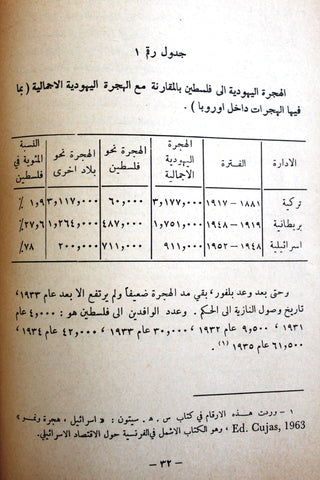 جدول رقم ١
الهجرة اليهودية الى فلسطين بالمقارنة مع الهجرة اليهودية الاجمالية ( بما
فيها الهجرات داخل اوروبا ) .
الادارة | الفترة | الهجرة اليهودية الاجمالية | الهجرة نحو فلسطين | الهجرة نحو بلاد اخرى | النسبة المئوية في فلسطين
تركية | ١٨٨١ – ١٩١٧ | ٣,١٧٧,٠٠٠ | ٦٠,٠٠٠ | ٣,١١٧,٠٠٠ | ١,٩٪
بريطانية | ١٩١٩ – ١٩٤٨ | ١,٧٥١,٠٠٠ | ٤٨٧,٠٠٠ | ١,٢٦٤,٠٠٠ | ٢٧,٦٪
اسرائيلية | ١٩٤٨ – ١٩٥٢ | ٩١١,٠٠٠ | ٧١١,٠٠٠ | ٢٠٠,٠٠٠ | ٧٨٪
وحتى بعد وعد بلفور، بقي مد الهجرة ضعيفاً ولم يرتفع الا بعد عام ١٩٣٣،
تاريخ وصول النازية الى الحكم . وعدد الوافدين الى فلسطين هو : ٤,٠٠٠ عام
١٩٣١ ، ٩,٥٠٠ عام ١٩٣٢ ، ٣٠,٠٠٠ عام ١٩٣٣ ، ٤٢,٠٠٠ عام ١٩٣٤ ،
٦١,٥٠٠ عام ١٩٣٥ (١) .
١ – وردت هذه الارقام في كتاب س . ه . سيتون : « اسرائيل ، هجرة ونمو »
Ed. Cujas, 1963 ، وهو الكتاب الاشمل في الفرنسية حول الاقتصاد الاسرائيلي.
– ٣٢ –